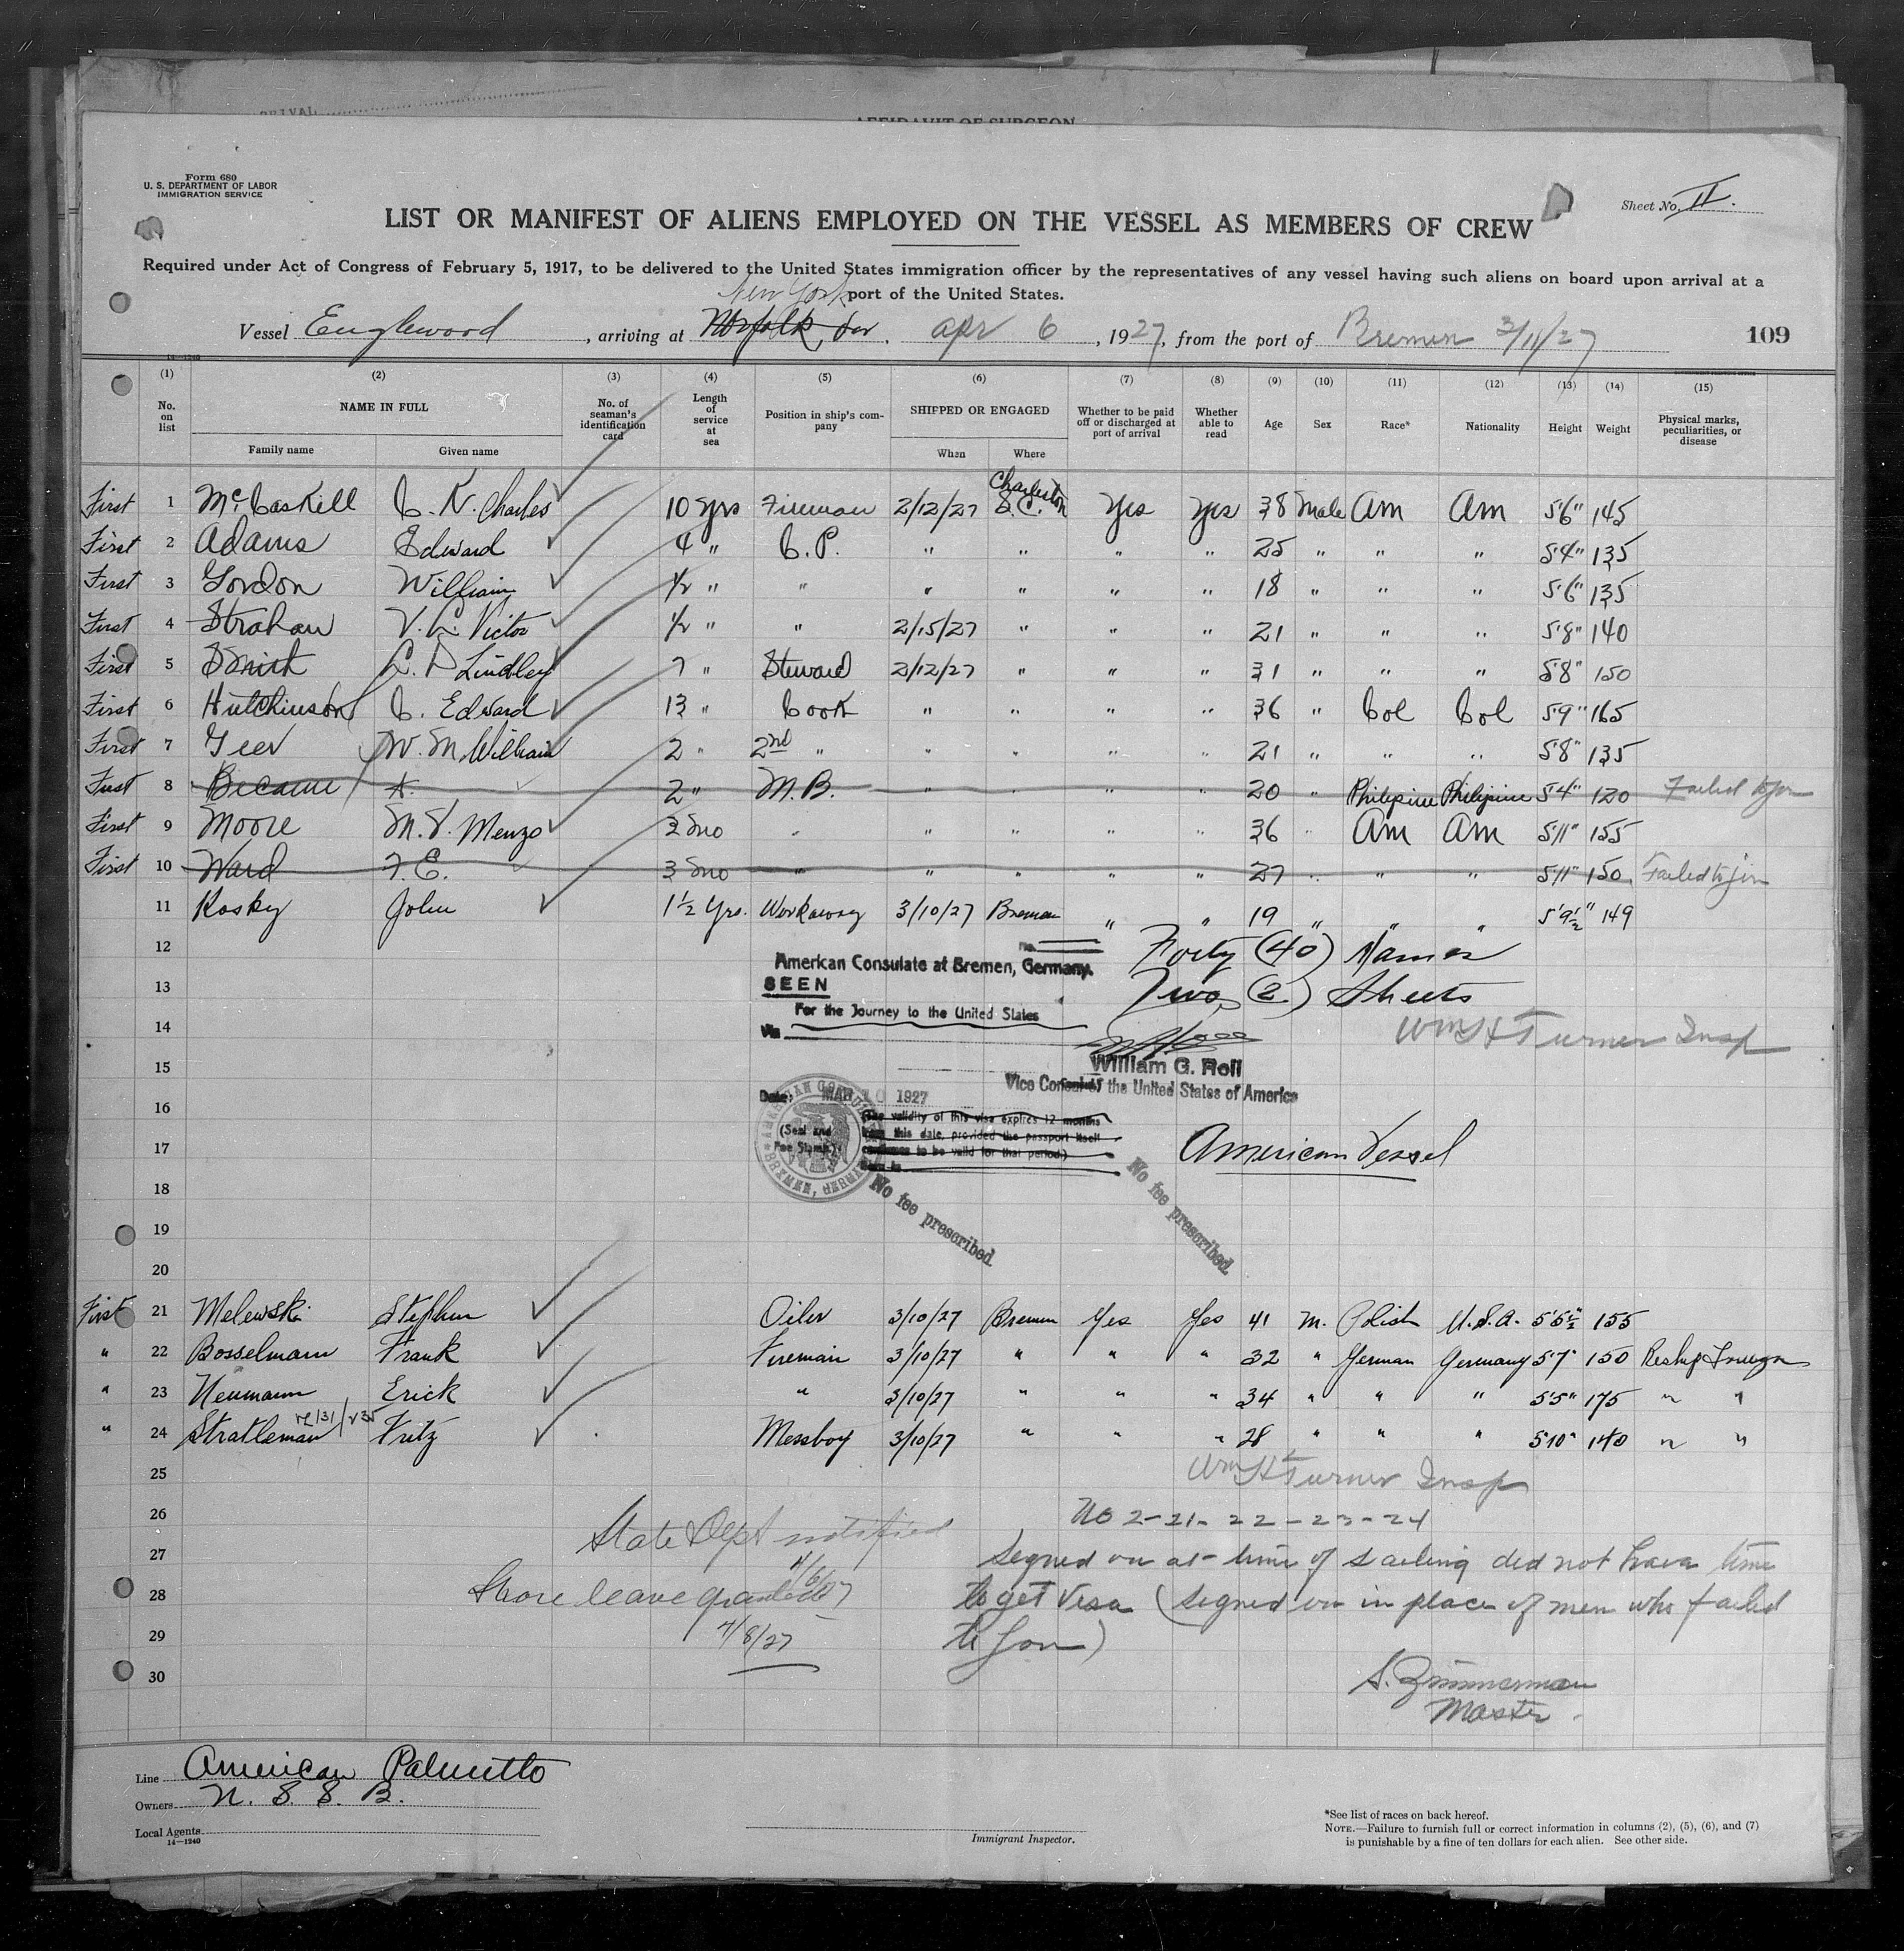 RIVAL
AFFIDAVIT OF SURGEON
Form 680
U. S. DEPARTMENT OF LABOR
IMMIGRATION SERVICE
Sheet No. II.
LIST OR MANIFEST OF ALIENS EMPLOYED ON THE VESSEL AS MEMBERS OF CREW
Required under Act of Congress of February 5, 1917, to be delivered to the United States immigration officer by the representatives of any vessel having such aliens on board upon arrival at a
New York port of the United States.
Vessel Englewood, arriving at Norfolk, Apr 6, 1927, from the port of Bremen 3/11/27 109
14-1240
(1) (2) (3) (4) (5) (6) (7) (8) (9) (10) (11) (12) (13) (14) (15)
No. on list NAME IN FULL Family name Given name No. of seaman's identification card Length of service at sea Position in ship's company SHIPPED OR ENGAGED When Where Whether to be paid off or discharged at port of arrival Whether able to read Age Sex Race* Nationality Height Weight Physical marks, peculiarities, or disease
First 1 McCaskill C. K. Charles 10 yrs Fireman 2/12/27 Charleston S.C. Yes Yes 38 Male Am Am 5'6" 145
First 2 Adams Edward 4 " C. P. " " " " 25 " " " 5'4" 135
First 3 Gordon William 1/2 " " " " " " 18 " " " 5'6" 135
First 4 Strahan V. L. Victor 1/2 " " 2/15/27 " " " 21 " " " 5'8" 140
First 5 Smith L. P. Lindley 7 " Steward 2/12/27 " " " 31 " " " 5'8" 150
First 6 Hutchinson C. Edward 13 " Cook " " " " 36 " Col Col 5'9" 165
First 7 Geer W. M. William 2 " 2nd " " " " " 21 " " " 5'8" 135
First 8 2 " M. B. " " " " 20 " Philipine Philipine 5'4" 120 Failed to join
First 9 Moore M. S. Menzo 3 Mo " " " " " 36 " Am Am 5'11" 155
First 10 Ward F. E. 3 Mo " " " " " 27 " " " 5'11" 150 Failed to join
11 Kosky John 1 1/2 Yrs. Workaway 3/10/27 Bremen " " 19 " " " 5'9 1/2" 149
12 No. Forty (40) Names
American Consulate at Bremen, Germany.
13 SEEN Two (2) Sheets
For the Journey to the United States
14 Via WmH Turner Insp
15 William G. Roll
Vice Consul of the United States of America
Date: MAR 10 1927
16 (The validity of this visa expires 12 months
(Seal and Fee Stamp) from this date, provided the passport itself
17 continues to be valid for that period.) American Vessel
AMERICAN CONSULATE BREMEN, GERMANY
18 No fee prescribed. No fee prescribed.
19
20
First 21 Melewski Stephen Oiler 3/10/27 Bremen Yes Yes 41 M. Polish U.S.A. 5'5 1/2" 155
" 22 Bosselmann Frank Fireman 3/10/27 " " " 32 " German Germany 5'7" 150 Reship Foreign
" 23 Neumann Erick " 3/10/27 " " " 34 " " " 5'5" 175 " "
" 24 Stratleman Fritz Messboy 3/10/27 " " " 28 " " " 5'10" 140 " "
25 WmH Turner Insp
26 No 2-21-22-23-24
State Dept notified
27 4/6/27 Signed on at time of sailing did not have time
28 Shore leave granted to get Visa (signed on in place of men who failed
29 4/8/27 to join)
30 S. Zimmerman
Master.
Line American Palmetto
Owners U. S. S. B.
Local Agents
14-1240
Immigrant Inspector.
*See list of races on back hereof.
NOTE.—Failure to furnish full or correct information in columns (2), (5), (6), and (7)
is punishable by a fine of ten dollars for each alien. See other side.